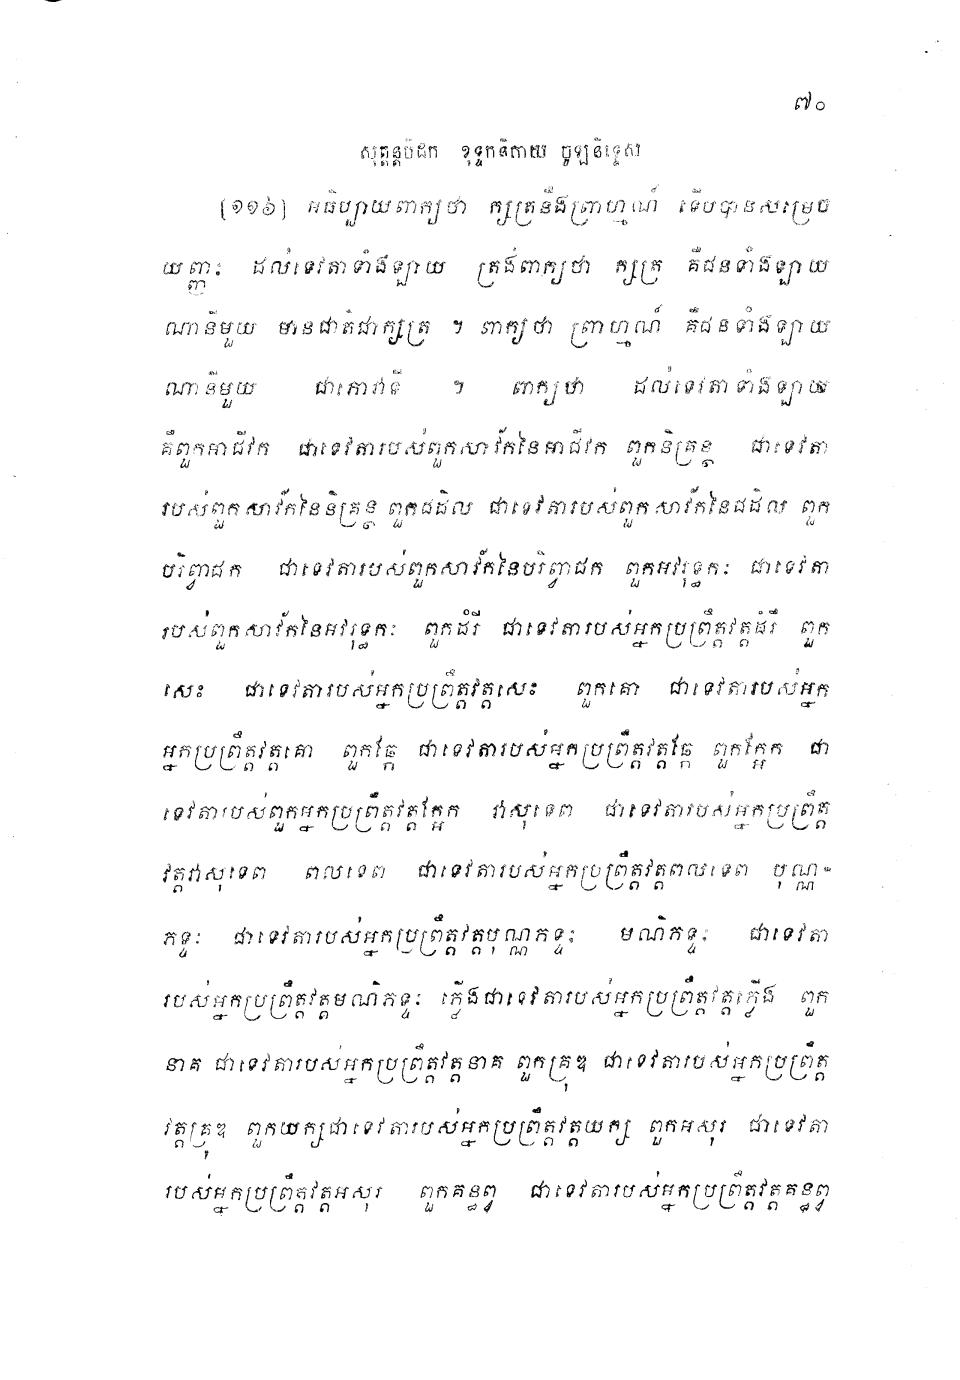 ៧០
សុត្តន្តបិដក ខុទ្ទកនិកាយ ចូឡនិទ្ទេស
[១១៦] អធិប្បាយពាក្យថា ក្សត្រនឹងព្រាហ្មណ៍ ទើបបានសម្រេច
យញ្ញៈ ដល់ទេវតាទាំងឡាយ ត្រង់ពាក្យថា ក្សត្រ គឺជនទាំងឡាយ
ណានីមួយ មានជាតិជាក្សត្រ ។ ពាក្យថា ព្រាហ្មណ៍ គឺជនទាំងឡាយ
ណានីមួយ ជាភោវាទី ។ ពាក្យថា ដល់ទេវតាទាំងឡាយ
គឺពួកអាជីវក ជាទេវតារបស់ពួកសាវ័កនៃអាជីវក ពួកនិគ្រន្ថ ជាទេវតា
របស់ពួកសាវ័កនៃនិគ្រន្ថ ពួកជដិល ជាទេវតារបស់ពួកសាវ័កនៃជដិល ពួក
បរិព្វាជក ជាទេវតារបស់ពួកសាវ័កនៃបរិព្វាជក ពួកអវរុទ្ធកៈ ជាទេវតា
របស់ពួកសាវ័កនៃអវរុទ្ធកៈ ពួកដំរី ជាទេវតារបស់អ្នកប្រព្រឹត្តវត្តដំរី ពួក
សេះ ជាទេវតារបស់អ្នកប្រព្រឹត្តវត្តសេះ ពួកគោ ជាទេវតារបស់អ្នក
អ្នកប្រព្រឹត្តវត្តគោ ពួកឆ្កែ ជាទេវតារបស់អ្នកប្រព្រឹត្តវត្តឆ្កែ ពួកក្អែក ជា
ទេវតារបស់ពួកអ្នកប្រព្រឹត្តវត្តក្អែក វាសុទេព ជាទេវតារបស់អ្នកប្រព្រឹត្ត
វត្តវាសុទេព ពលទេព ជាទេវតារបស់អ្នកប្រព្រឹត្តវត្តពលទេព បុណ្ណ-
ភទ្ទៈ ជាទេវតារបស់អ្នកប្រព្រឹត្តវត្តបុណ្ណភទ្ទៈ មណិភទ្ទៈ ជាទេវតា
របស់អ្នកប្រព្រឹត្តវត្តមណិភទ្ទៈ ភ្លើងជាទេវតារបស់អ្នកប្រព្រឹត្តវត្តភ្លើង ពួក
នាគ ជាទេវតារបស់អ្នកប្រព្រឹត្តវត្តនាគ ពួកគ្រុឌ ជាទេវតារបស់អ្នកប្រព្រឹត្ត
វត្តគ្រុឌ ពួកយក្សជាទេវតារបស់អ្នកប្រព្រឹត្តវត្តយក្ស ពួកអសុរ ជាទេវតា
របស់អ្នកប្រព្រឹត្តវត្តអសុរ ពួកគន្ធព្វ ជាទេវតារបស់អ្នកប្រព្រឹត្តវត្តគន្ធព្វ